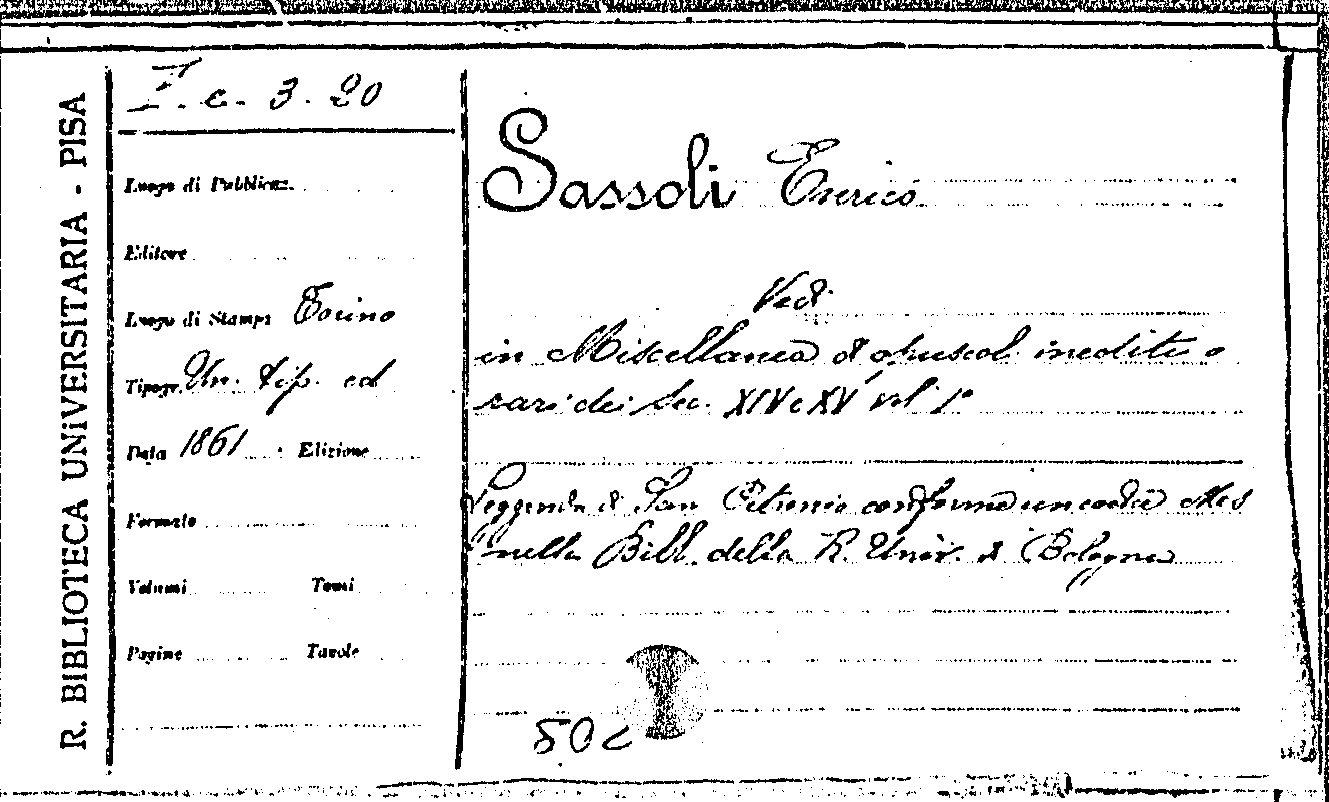 R. BIBLIOTECA UNIVERSITARIA - PISA
I. c. 3. 20
Luogo di Pubblicaz.
Editore
Luogo di Stampa Torino
Tipogr. Un. tip. ed
Data 1861 Edizione
Formato
Volumi Tomi
Pagine Tavole
Sassoli Enrico
Vedi
in Miscellanea di opuscoli inediti o
rari dei Sec. XIV e XV vol 1º
Leggenda di San Petronio conforme un codice Mes
nella Bibl. della R. Univ. di Bologna
50c